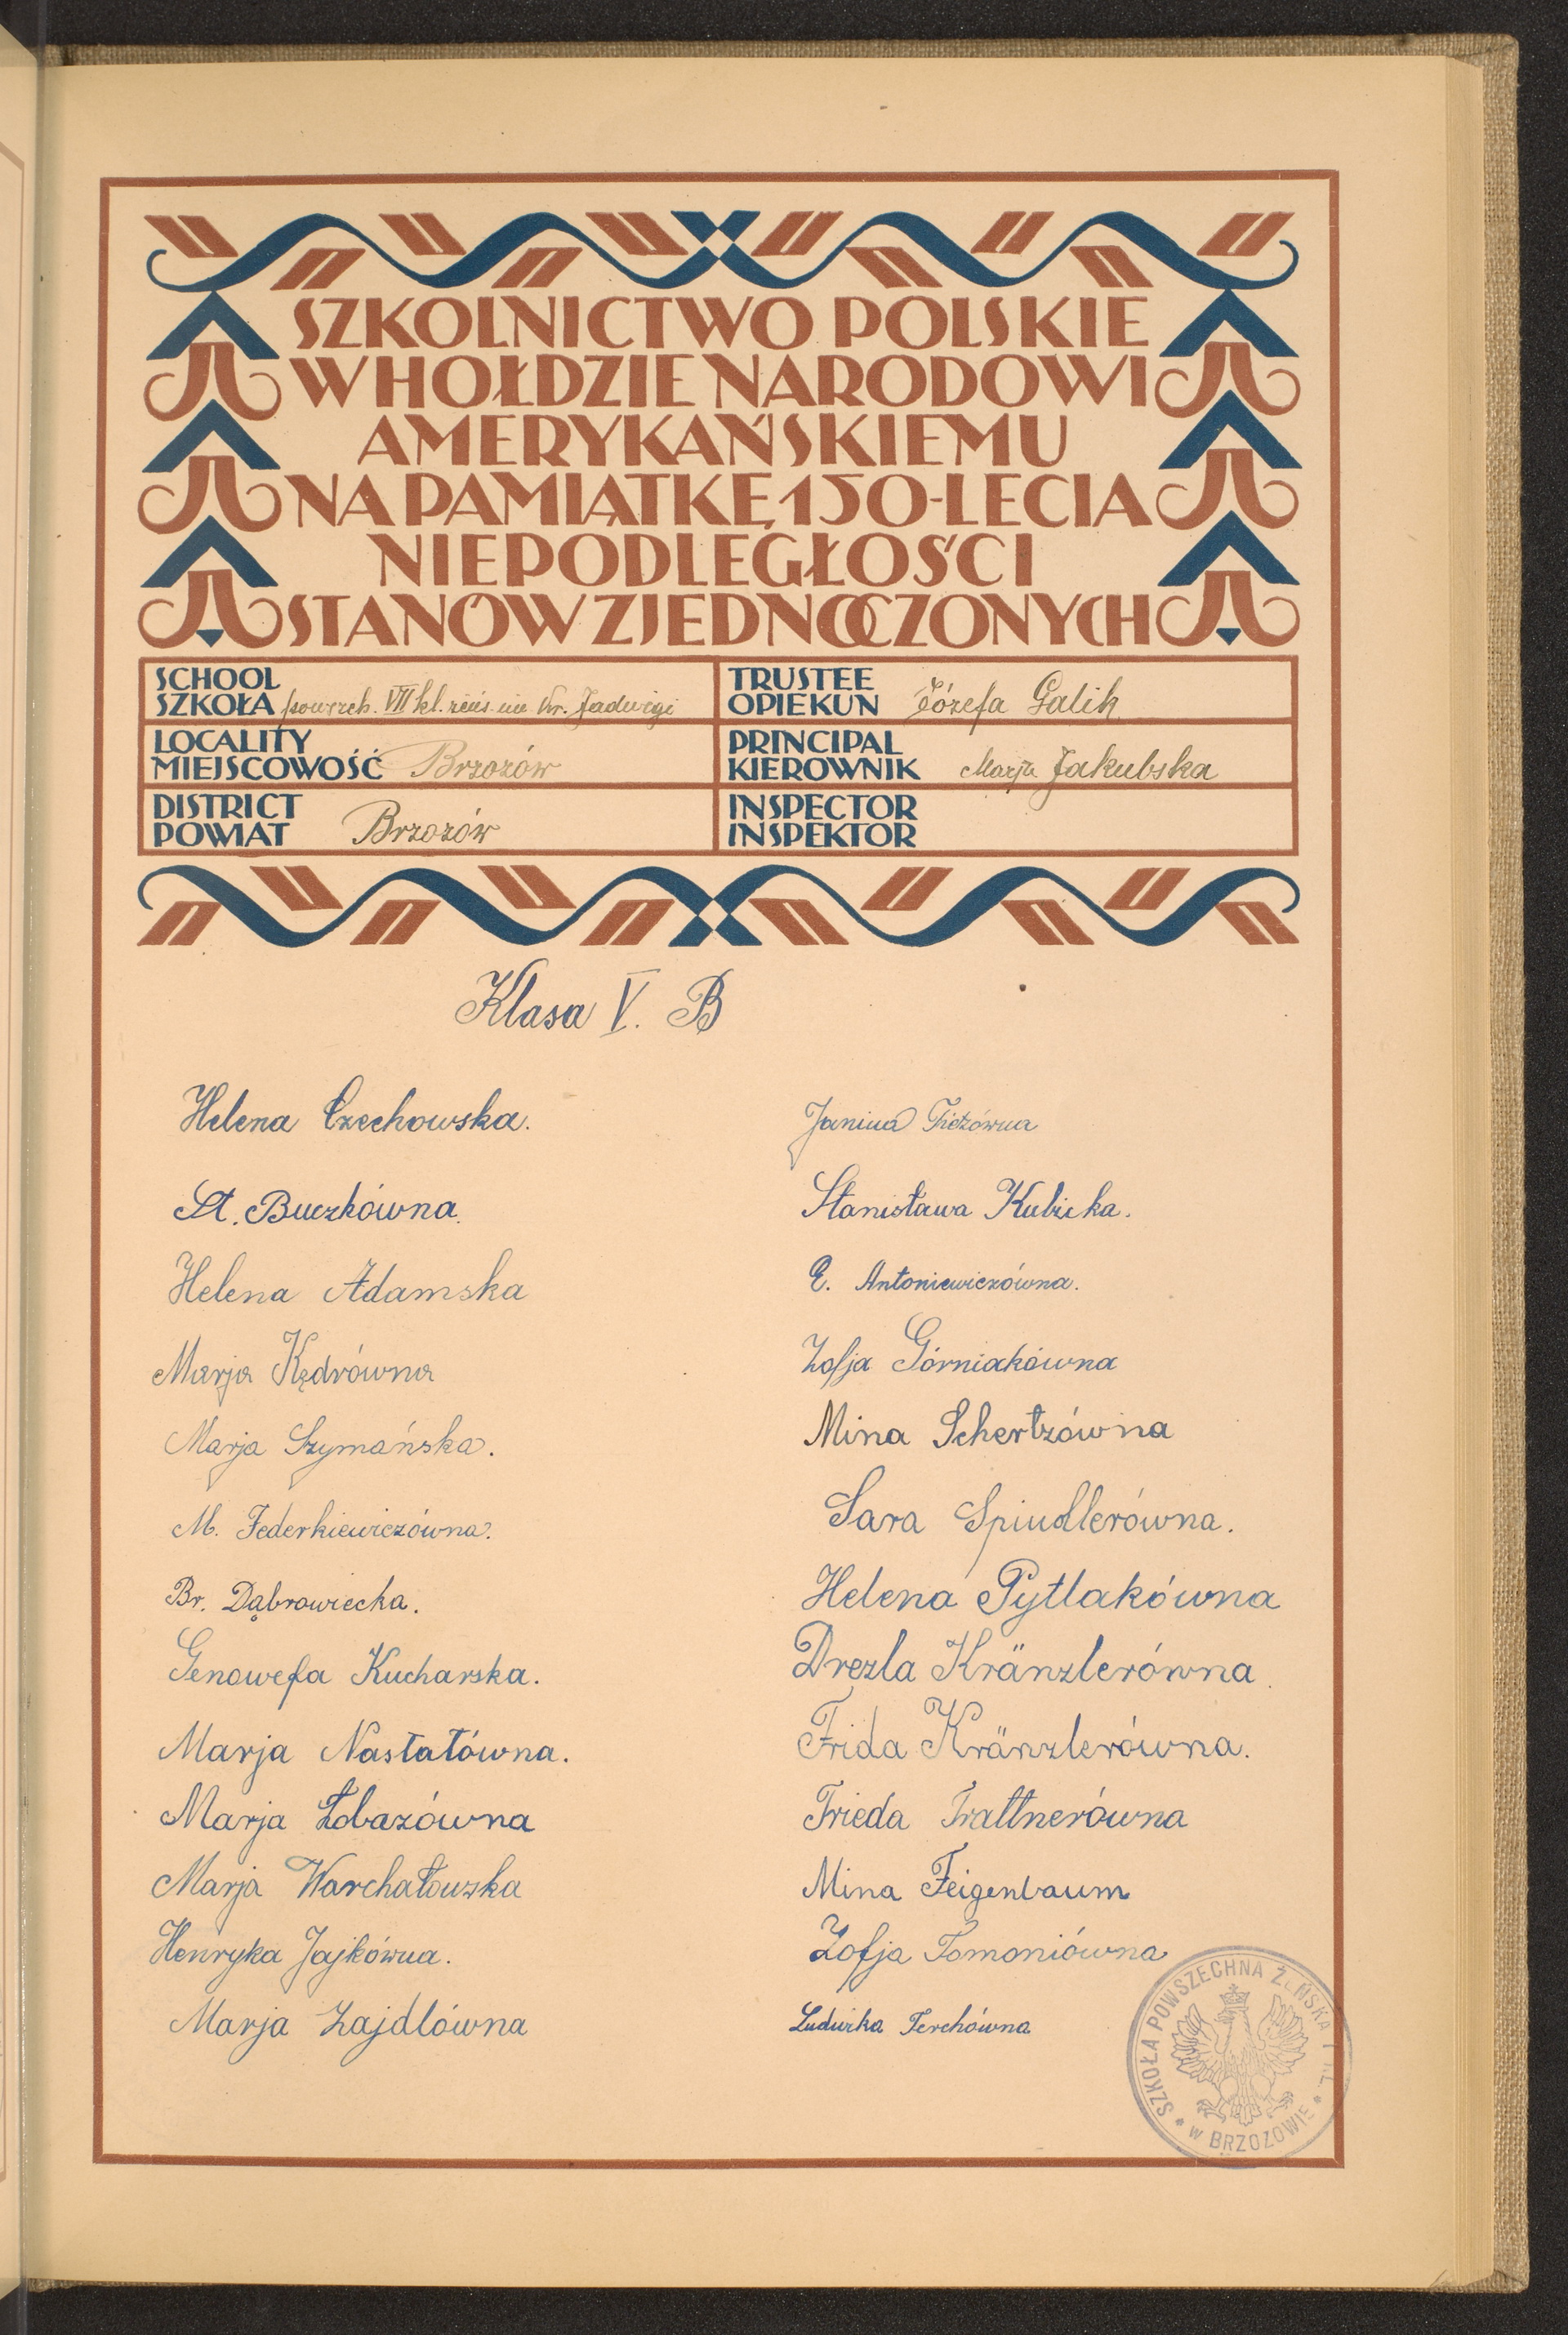 SZKOLNICTWO POLSKIE
W HOŁDZIE NARODOWI
AMERYKAŃSKIEMU
NA PAMIĄTKĘ 150-LECIA
NIEPODLEGŁOŚCI
STANÓW ZJEDNOCZONYCH
SCHOOL
SZKOŁA powszch. VII kl. żeńs. im Kr. Jadwigi
LOCALITY
MIEJSCOWOŚĆ Brzozów
DISTRICT
POWIAT Brzozów
TRUSTEE
OPIEKUN Józefa Galik
PRINCIPAL
KIEROWNIK Marja Jakubska
INSPECTOR
INSPEKTOR
Klasa V. B
Helena Czechowska.
St. Buczkówna.
Helena Adamska
Marja Kędrówna
Marja Szymańska.
M. Federkiewiczówna.
Br. Dąbrowiecka.
Genowefa Kucharska.
Marja Nastałówna.
Marja Łobazówna
Marja Warchałowska
Henryka Jajkówna.
Marja Zajdlówna
Janina Fieżówna
Stanisława Kubicka.
E. Antoniewiczówna.
Zofja Górniakówna
Mina Schertzówna
Sara Spindlerówna.
Helena Pytlakówna
Drezla Kränzlerówna
Frida Kränzlerówna.
Frieda Trattnerówna
Mina Feigenbaum
Zofja Tomoniówna
Ludwika Terchówna
SZKOŁA POWSZECHNA ŻEŃSKA 7 KL.
* W BRZOZOWIE *